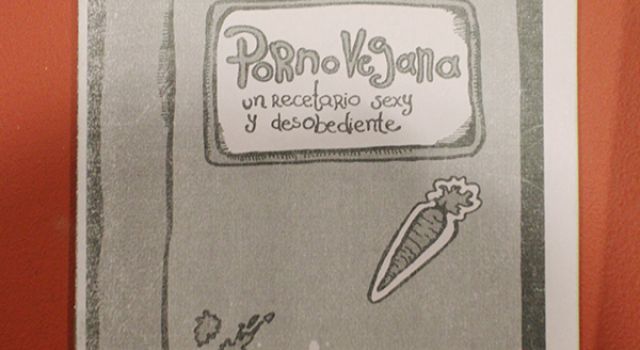 PoRnoVegana
un Recetario sexy
y desobediente